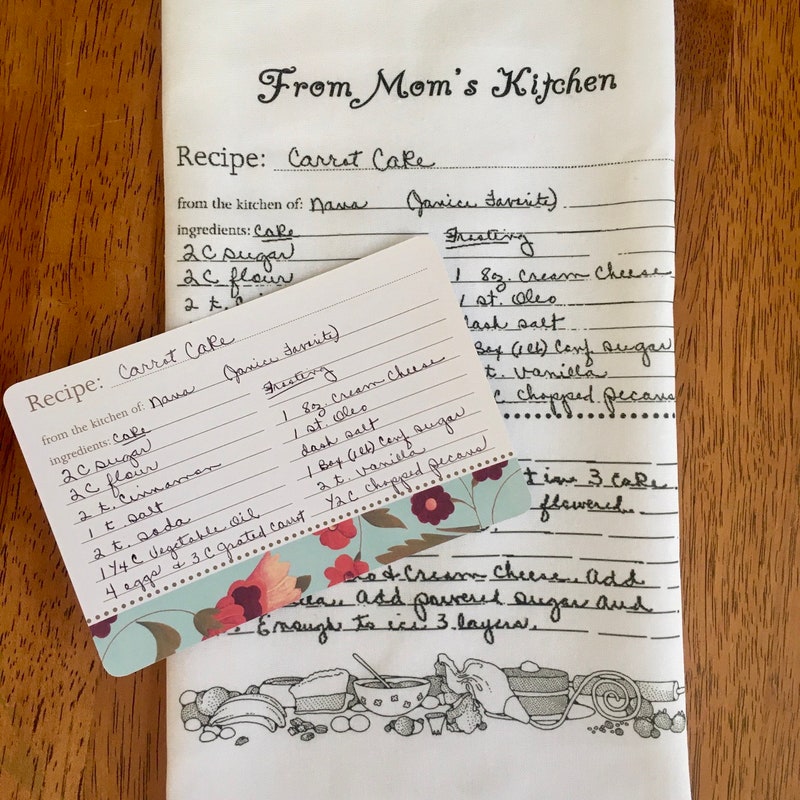 From Mom's Kitchen
Recipe: Carrot Cake
from the kitchen of: Nana (Janice Favorite)
ingredients: Cake Frosting
2 C sugar
2 C flour 1 8oz. Cream Cheese
2 t. 1 st. Oleo
dash salt
Box (1lb) Conf sugar
t. Vanilla
C chopped pecans
in 3 cake
flowered.
& Cream Cheese. Add
Add powered sugar and
Enough to ice 3 layers.
Recipe: Carrot Cake
from the kitchen of: Nana (Janice Favorite)
ingredients: Cake Frosting
2 C sugar 1 8oz. Cream Cheese
2 C flour 1 st. Oleo
2 t. Cinnamon dash salt
1 t. salt 1 Box (1lb) Conf sugar
2 t. soda 2 t. Vanilla
1 1/4 C Vegetable Oil 1/2 C chopped pecans
4 eggs & 3 C grated carrot